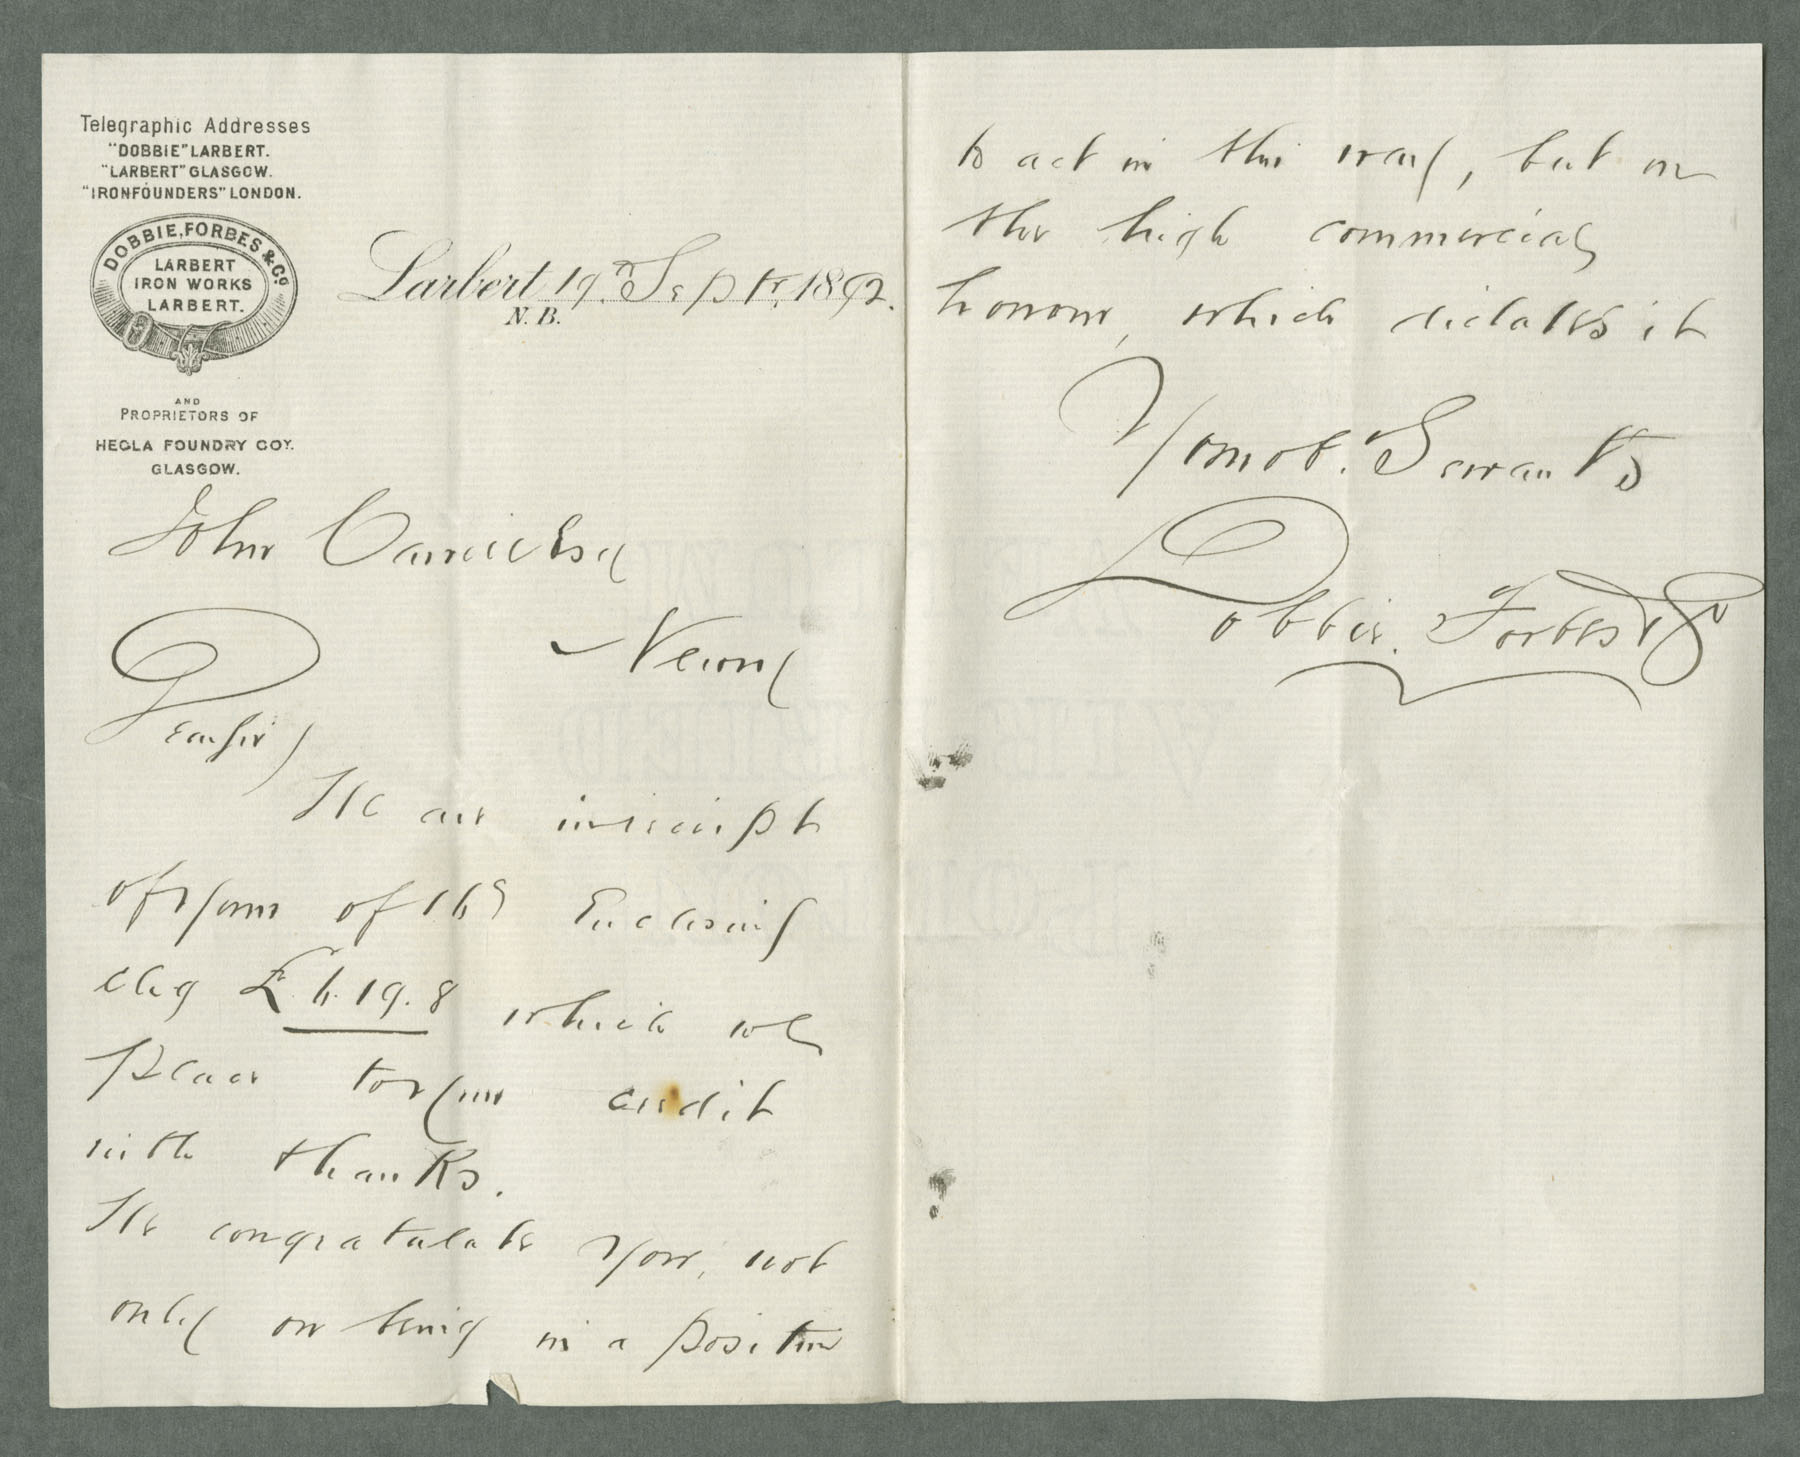 Telegraphic Addresses
"DOBBIE" LARBERT.
"LARBERT" GLASGOW.
"IRONFOUNDERS" LONDON.
DOBBIE, FORBES & Co.
LARBERT
IRON WORKS
LARBERT.
AND
PROPRIETORS OF
HECLA FOUNDRY COY.
GLASGOW.
Larbert 19th Septr. 1892.
N.B.
John Esq
Newry
Dear Sir
We are in receipt
of your of 16th Enclosing
chq £ 19. 8 which we
place to your credit
with thanks.
We congratulate you, not
only on being in a position
to act in this way, but on
the high commercial
honour, which dictates it
Your ob. Servants
Dobbie. Forbes & Co